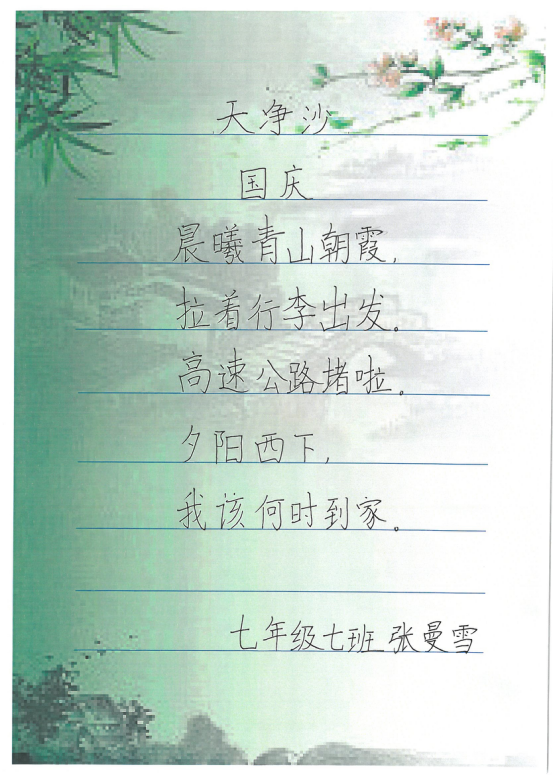 天净沙
国庆
晨曦青山朝霞,
拉着行李出发。
高速公路堵啦。
夕阳西下,
我该何时到家。
七年级七班 张曼雪